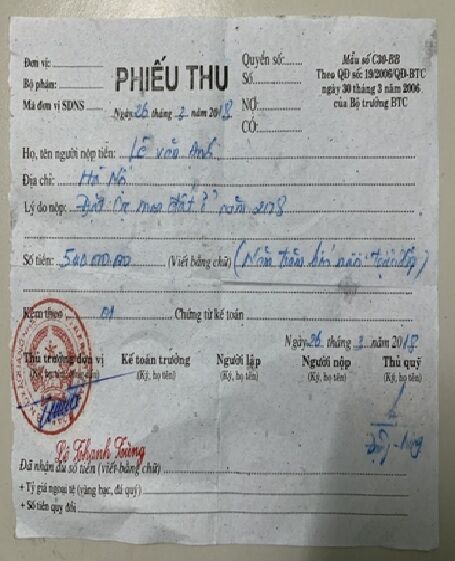 Đơn vị:
Bộ phận:
Mã đơn vị SDNS
PHIẾU THU
Ngày 26 tháng 2 năm 2018
Quyển số:
Số
NỢ:
CÓ:
Mẫu số C30-BB
Theo QĐ số: 19/2006/QĐ-BTC
ngày 30 tháng 3 năm 2006
của Bộ trưởng BTC
Họ, tên người nộp tiền: Lê văn Anh
Địa chỉ: Hà Nội
Lý do nộp: mua đất ở năm 2018
Số tiền: 540.000.000 (Viết bằng chữ) (Năm trăm bốn mươi triệu
Kèm theo 01 Chứng từ kế toán
Ngày 26 tháng 2 năm 2018
Thủ trưởng đơn vị Kế toán trưởng Người lập Người nộp Thủ quỹ
(Ký, họ tên) (Ký, họ tên) (Ký, họ tên) (Ký, họ tên)
Lê Thanh Tùng
Đã nhận đủ số tiền (viết bằng chữ)
+ Tỷ giá ngoại tệ (vàng bạc, đá quý)
+ Số tiền quy đổi